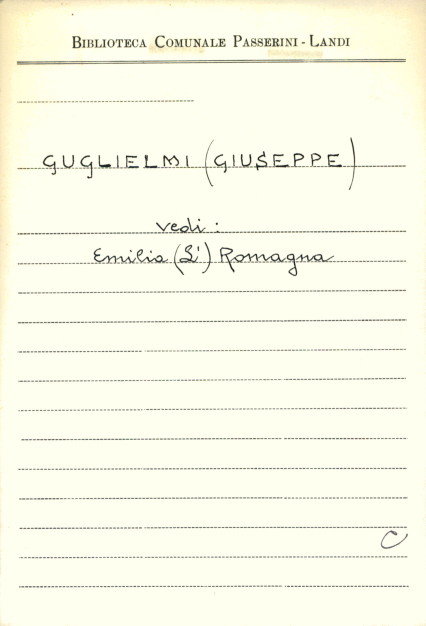 BIBLIOTECA COMUNALE PASSERINI - LANDI
GUGLIELMI (GIUSEPPE)
vedi :
Emilia (L') Romagna
C